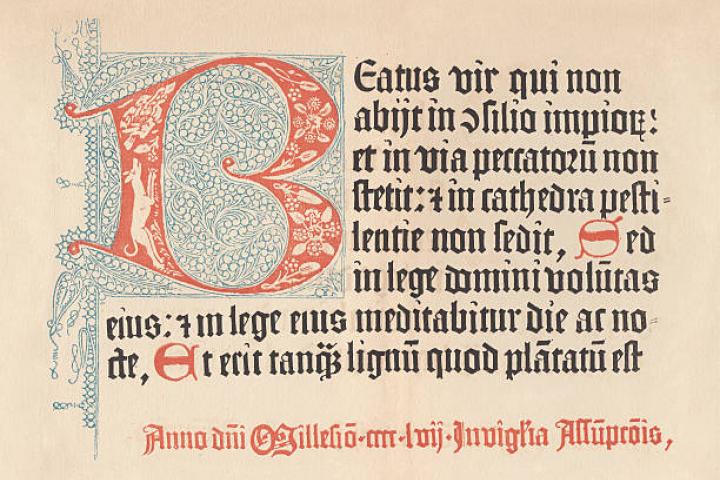 Beatus vir qui non
abijt in ꝯsilio impioꝝ:
et in via peccatorū non
stetit: ⁊ in cathedra pesti-
lentie non sedit, Sed
in lege domini volūtas
eius: ⁊ in lege eius meditabitur die ac no-
cte, Et erit tanqꝫ lignū quod plātatū est
Anno dn̄i Millesiō·cccc·lvij·In vigl'ia Assūpcōis,